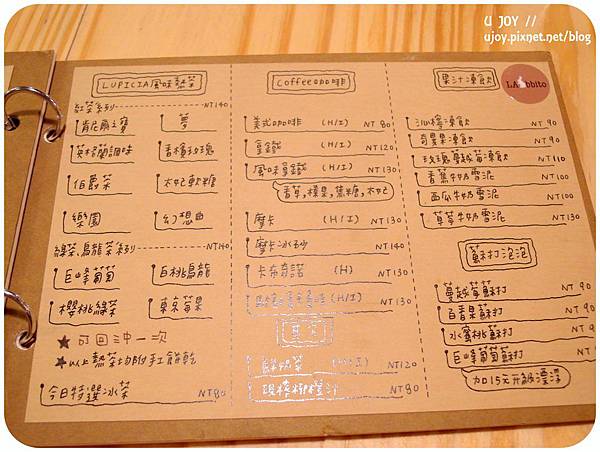 U JOY //
ujoy.pixnet.net/blog
LUPICIA風味熱茶
紅茶系列 NT140
肯尼爾之寶 夢
英格蘭調味 香檳玫瑰
伯爵茶 太妃軟糖
樂園 幻想曲
綠茶、烏龍茶系列 NT140
巨峰葡萄 白桃烏龍
櫻桃綠茶 東京莓果
★可回沖一次
★以上熱茶均附手工餅乾
今日特選冰茶 NT80
Coffee咖啡
美式咖啡 (H/I) NT 80
拿鐵 (H/I) NT120
風味拿鐵 (H/I) NT130
香草,榛果,焦糖,太妃
摩卡 (H/I) NT130
摩卡冰砂 NT130
卡布奇諾 (H) NT130
(H/I) NT130
其它
鮮奶茶 (H/I) NT120
現榨柳橙汁 NT80
果汁凍飲
沁檸凍飲 NT 90
奇異果凍飲 NT 90
玫瑰蔓越莓凍飲 NT110
香蕉牛奶雪泥 NT100
西瓜牛奶雪泥 NT100
草莓牛奶雪泥 NT130
蘇打泡泡
蔓越莓蘇打 NT 90
百香果蘇打 NT 90
水蜜桃蘇打 NT 90
巨峰葡萄蘇打 NT 90
加15元升級漂浮